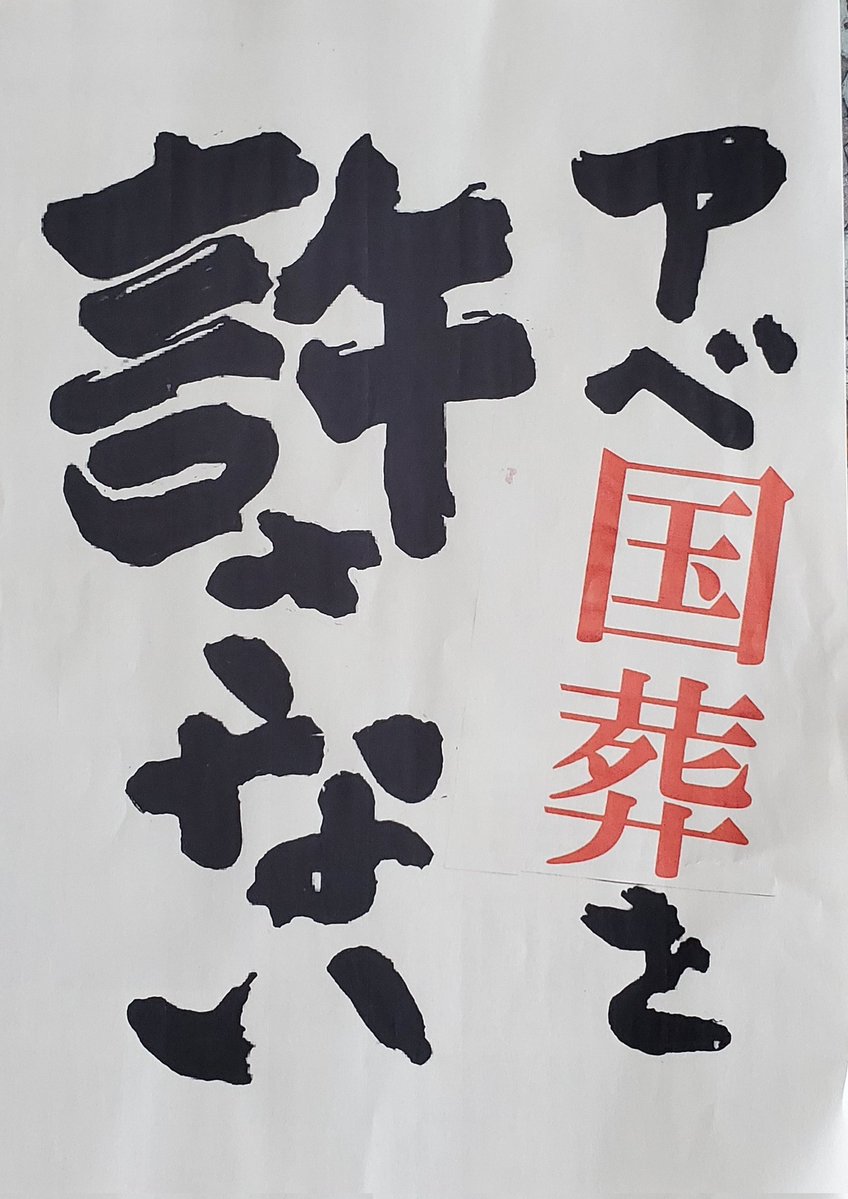 アベ国葬を
許さない